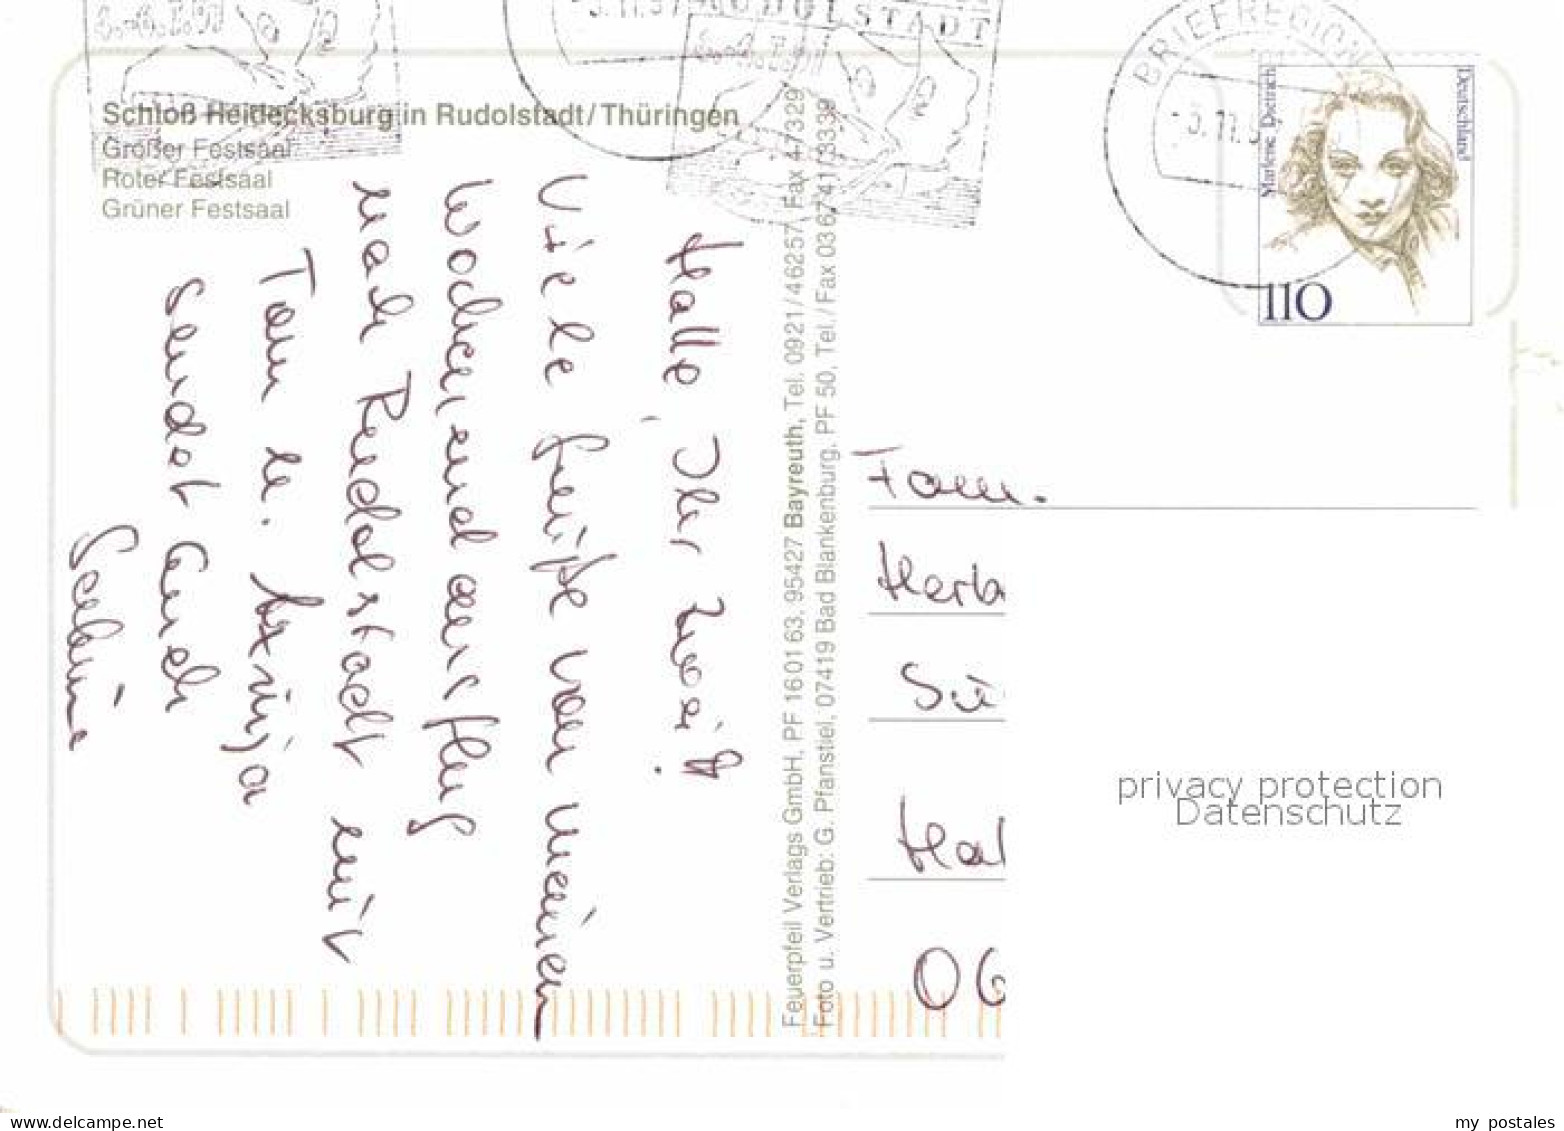 RUDOLSTADT
BRIEFREGION
Schloß Heidecksburg in Rudolstadt/Thüringen
Großer Festsaal
Roter Festsaal
Grüner Festsaal
Deutschland
Marlene Dietrich
110
Hallo, Ihr Zwei!
Viele Grüße von meinem
Wochenendausflug
nach Rudolstadt mit
Fam u.
sendet Euch
Sabine
Feuerpfeil Verlags GmbH, PF 16 01 63, 95427 Bayreuth, Tel. 0921/46257, Fax 47329
Foto u. Vertrieb: G. Pfanstiel, 07419 Bad Blankenburg, PF 50, Tel./Fax 036741/3339
Fam.
Herb
Sü
Hal
06
privacy protection
Datenschutz
www.delcampe.net
my postales